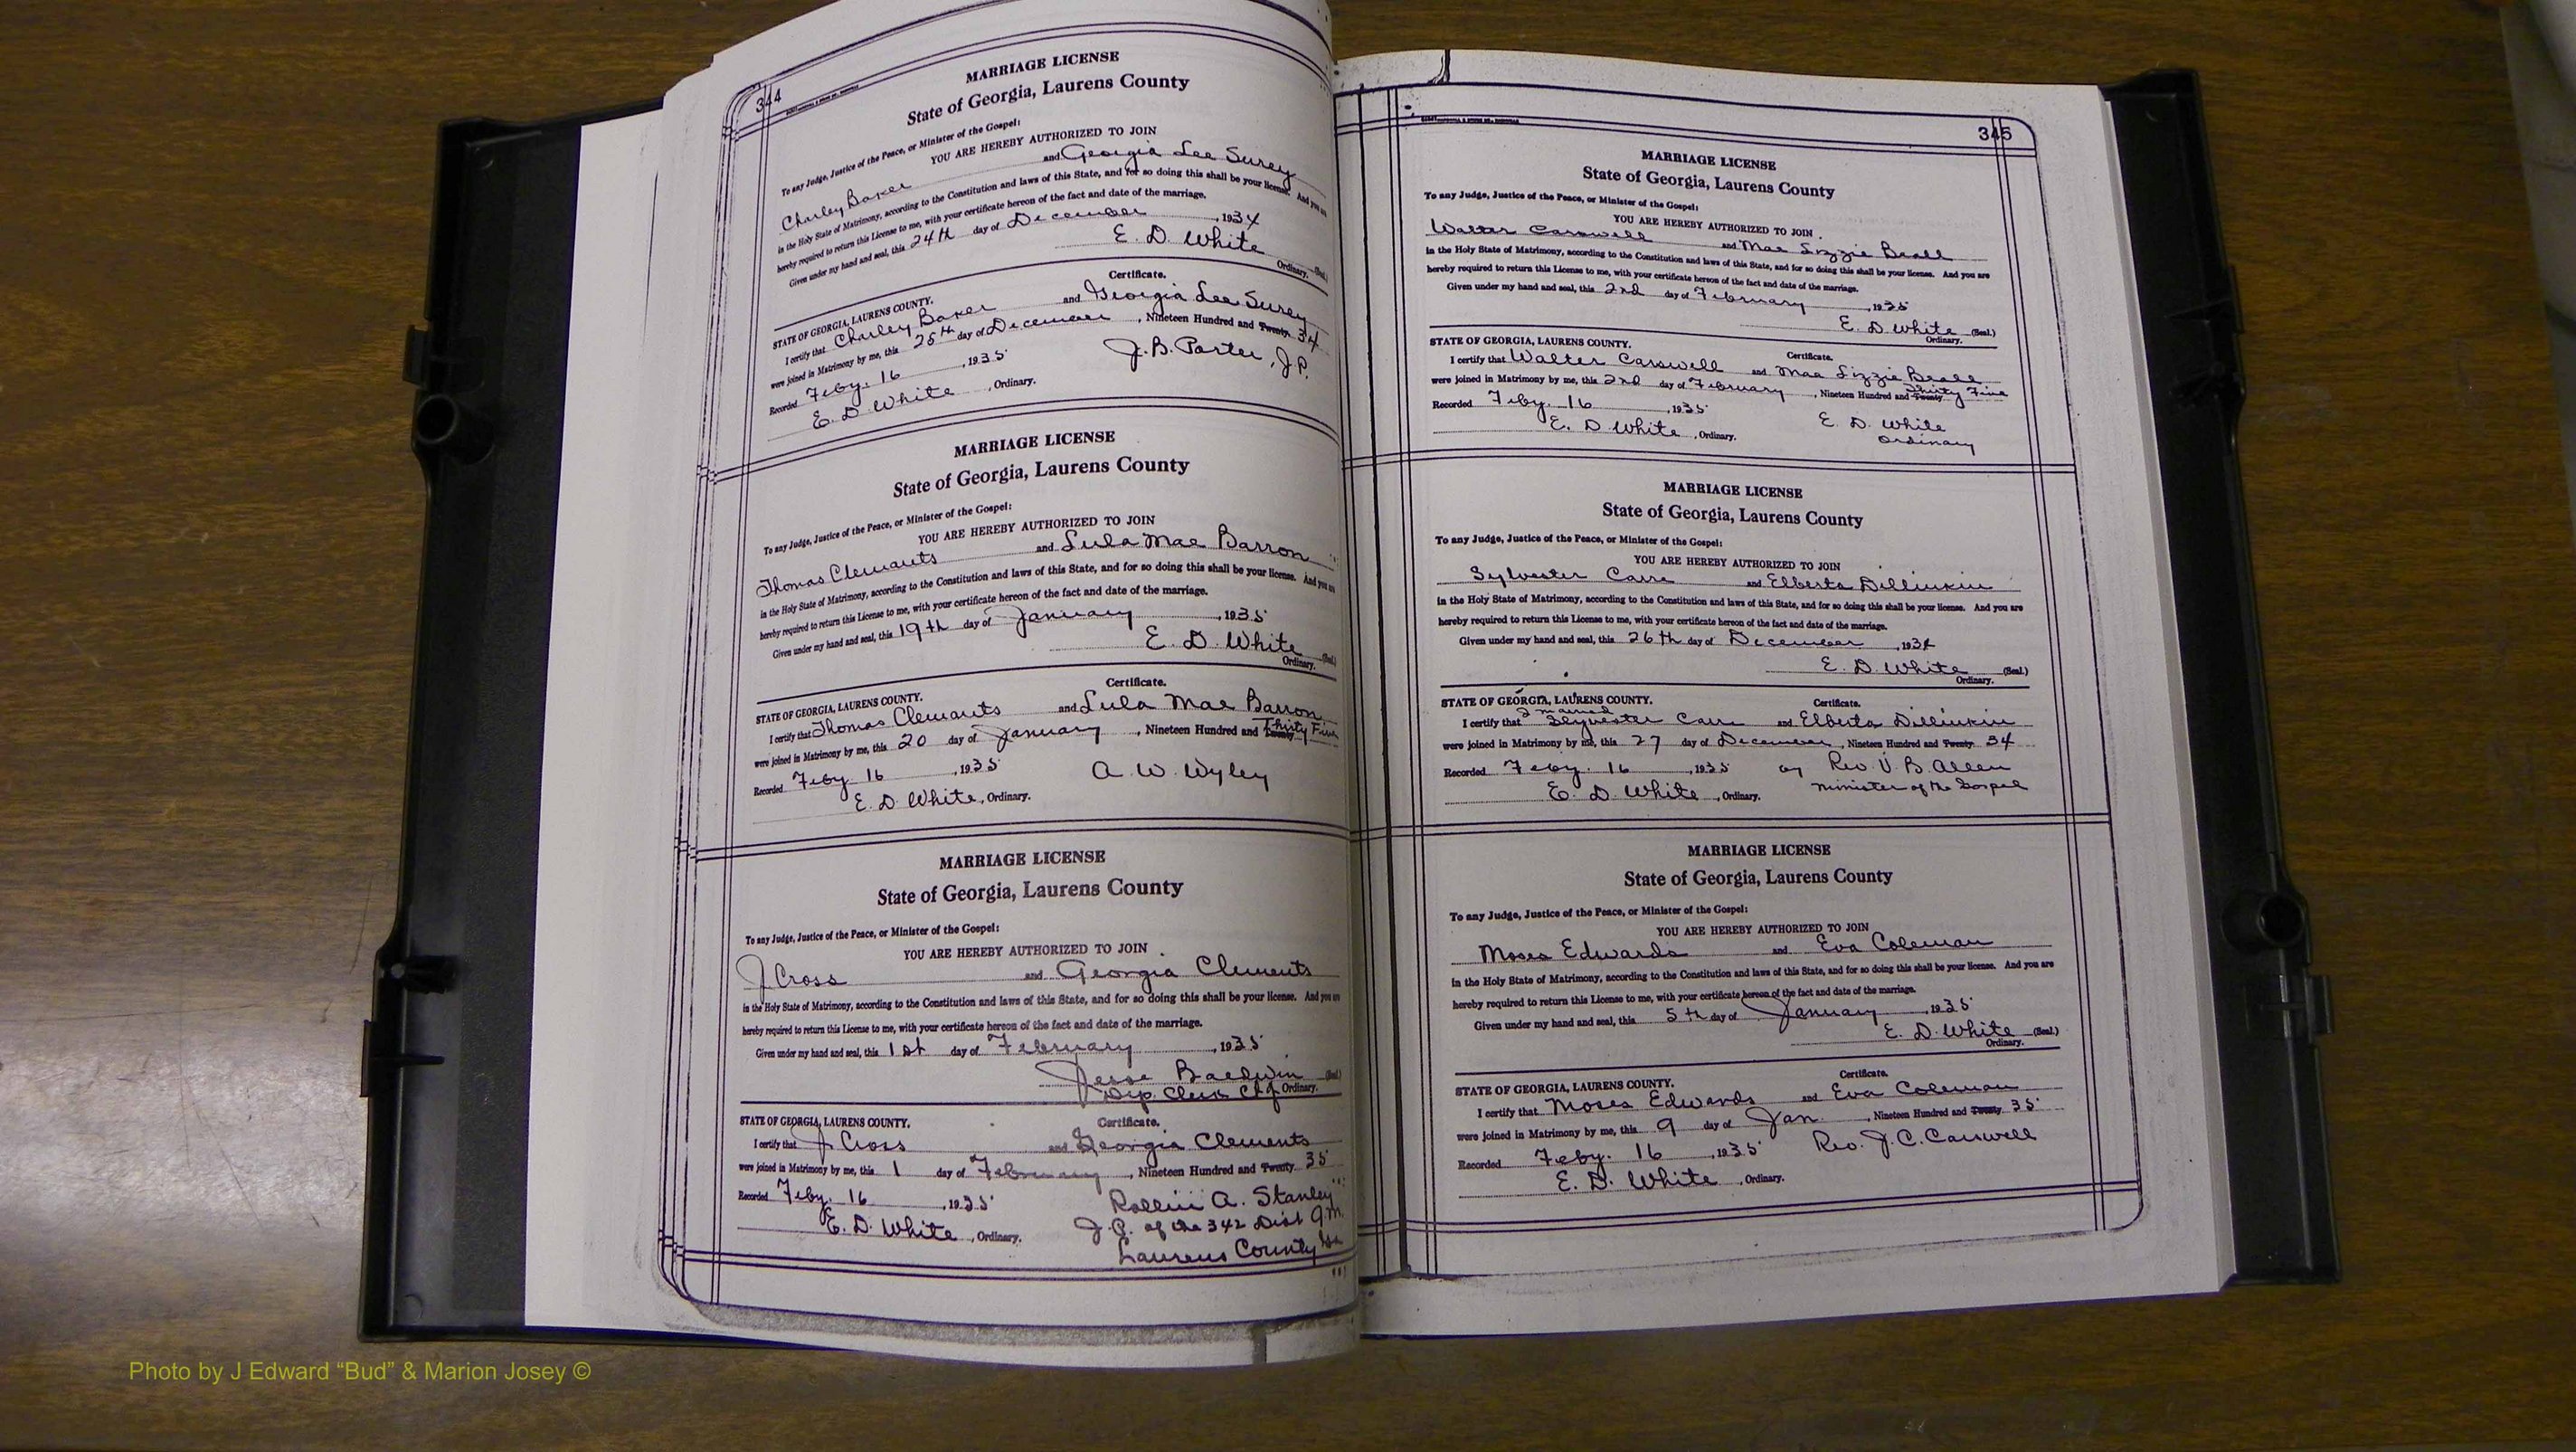 344
MARRIAGE LICENSE
State of Georgia, Laurens County
To any Judge, Justice of the Peace, or Minister of the Gospel:
YOU ARE HEREBY AUTHORIZED TO JOIN
Charley Baker and Georgia Lee Surey
in the Holy State of Matrimony, according to the Constitution and laws of this State, and for so doing this shall be your license. And you are
hereby required to return this License to me, with your certificate hereon of the fact and date of the marriage.
Given under my hand and seal, this 24th day of December, 1934
E. D. White (Seal.)
Ordinary.
Certificate.
STATE OF GEORGIA, LAURENS COUNTY.
I certify that Charley Baker and Georgia Lee Surey
were joined in Matrimony by me, this 25th day of December, Nineteen Hundred and Twenty 34
Recorded Feby. 16, 1935 J. B. Porter, J.P.
E. D. White, Ordinary.
MARRIAGE LICENSE
State of Georgia, Laurens County
To any Judge, Justice of the Peace, or Minister of the Gospel:
YOU ARE HEREBY AUTHORIZED TO JOIN
Thomas Clements and Lula Mae Barron
in the Holy State of Matrimony, according to the Constitution and laws of this State, and for so doing this shall be your license. And you are
hereby required to return this License to me, with your certificate hereon of the fact and date of the marriage.
Given under my hand and seal, this 19th day of January, 1935
E. D. White (Seal.)
Ordinary.
Certificate.
STATE OF GEORGIA, LAURENS COUNTY.
I certify that Thomas Clements and Lula Mae Barron
were joined in Matrimony by me, this 20 day of January, Nineteen Hundred and Twenty Thirty Five
Recorded Feby. 16, 1935 A. W. Wyley
E. D. White, Ordinary.
MARRIAGE LICENSE
State of Georgia, Laurens County
To any Judge, Justice of the Peace, or Minister of the Gospel:
YOU ARE HEREBY AUTHORIZED TO JOIN
J Cross and Georgia Clements
in the Holy State of Matrimony, according to the Constitution and laws of this State, and for so doing this shall be your license. And you are
hereby required to return this License to me, with your certificate hereon of the fact and date of the marriage.
Given under my hand and seal, this 1st day of February, 1935
Jesse Baldwin (Seal.)
Dep. Clerk Ct of Ordinary.
Certificate.
STATE OF GEORGIA, LAURENS COUNTY.
I certify that J Cross and Georgia Clements
were joined in Matrimony by me, this 1 day of February, Nineteen Hundred and Twenty 35
Recorded Feby. 16, 1935 Rollin A. Stanley
E. D. White, Ordinary. J.P. of the 342 Dist G.M.
Laurens County Ga
345
MARRIAGE LICENSE
State of Georgia, Laurens County
To any Judge, Justice of the Peace, or Minister of the Gospel:
YOU ARE HEREBY AUTHORIZED TO JOIN
Walter Carswell and Mae Lizzie Beall
in the Holy State of Matrimony, according to the Constitution and laws of this State, and for so doing this shall be your license. And you are
hereby required to return this License to me, with your certificate hereon of the fact and date of the marriage.
Given under my hand and seal, this 2nd day of February, 1935
E. D. White (Seal.)
Ordinary.
STATE OF GEORGIA, LAURENS COUNTY. Certificate.
I certify that Walter Carswell and Mae Lizzie Beall
were joined in Matrimony by me, this 2nd day of February, Nineteen Hundred and Twenty Thirty Five
Recorded Feby. 16, 1935 E. D. White
E. D. White, Ordinary. Ordinary
MARRIAGE LICENSE
State of Georgia, Laurens County
To any Judge, Justice of the Peace, or Minister of the Gospel:
YOU ARE HEREBY AUTHORIZED TO JOIN
Sylvester Carre and Elberta Dillinkin
in the Holy State of Matrimony, according to the Constitution and laws of this State, and for so doing this shall be your license. And you are
hereby required to return this License to me, with your certificate hereon of the fact and date of the marriage.
Given under my hand and seal, this 26th day of December, 1934
E. D. White (Seal.)
Ordinary.
STATE OF GEORGIA, LAURENS COUNTY. Certificate.
I certify that I married Slyvester Carre and Elberta Dillinkin
were joined in Matrimony by me, this 27 day of December, Nineteen Hundred and Twenty 34
Recorded Feby. 16, 1935 by Rev. V. B. Allen
E. D. White, Ordinary. minister of the Gospel
MARRIAGE LICENSE
State of Georgia, Laurens County
To any Judge, Justice of the Peace, or Minister of the Gospel:
YOU ARE HEREBY AUTHORIZED TO JOIN
Moses Edwards and Eva Coleman
in the Holy State of Matrimony, according to the Constitution and laws of this State, and for so doing this shall be your license. And you are
hereby required to return this License to me, with your certificate hereon of the fact and date of the marriage.
Given under my hand and seal, this 5th day of January, 1935
E. D. White (Seal.)
Ordinary.
STATE OF GEORGIA, LAURENS COUNTY. Certificate.
I certify that Moses Edwards and Eva Coleman
were joined in Matrimony by me, this 9 day of Jan., Nineteen Hundred and Twenty 35
Recorded Feby. 16, 1935 Rev. J. C. Carswell
E. D. White, Ordinary.
Photo by J Edward “Bud” & Marion Josey ©